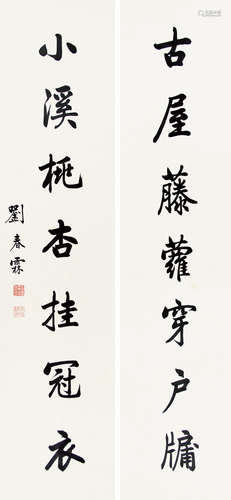 古屋藤蘿穿户牖
小溪桃杏挂冠衣
劉春霖